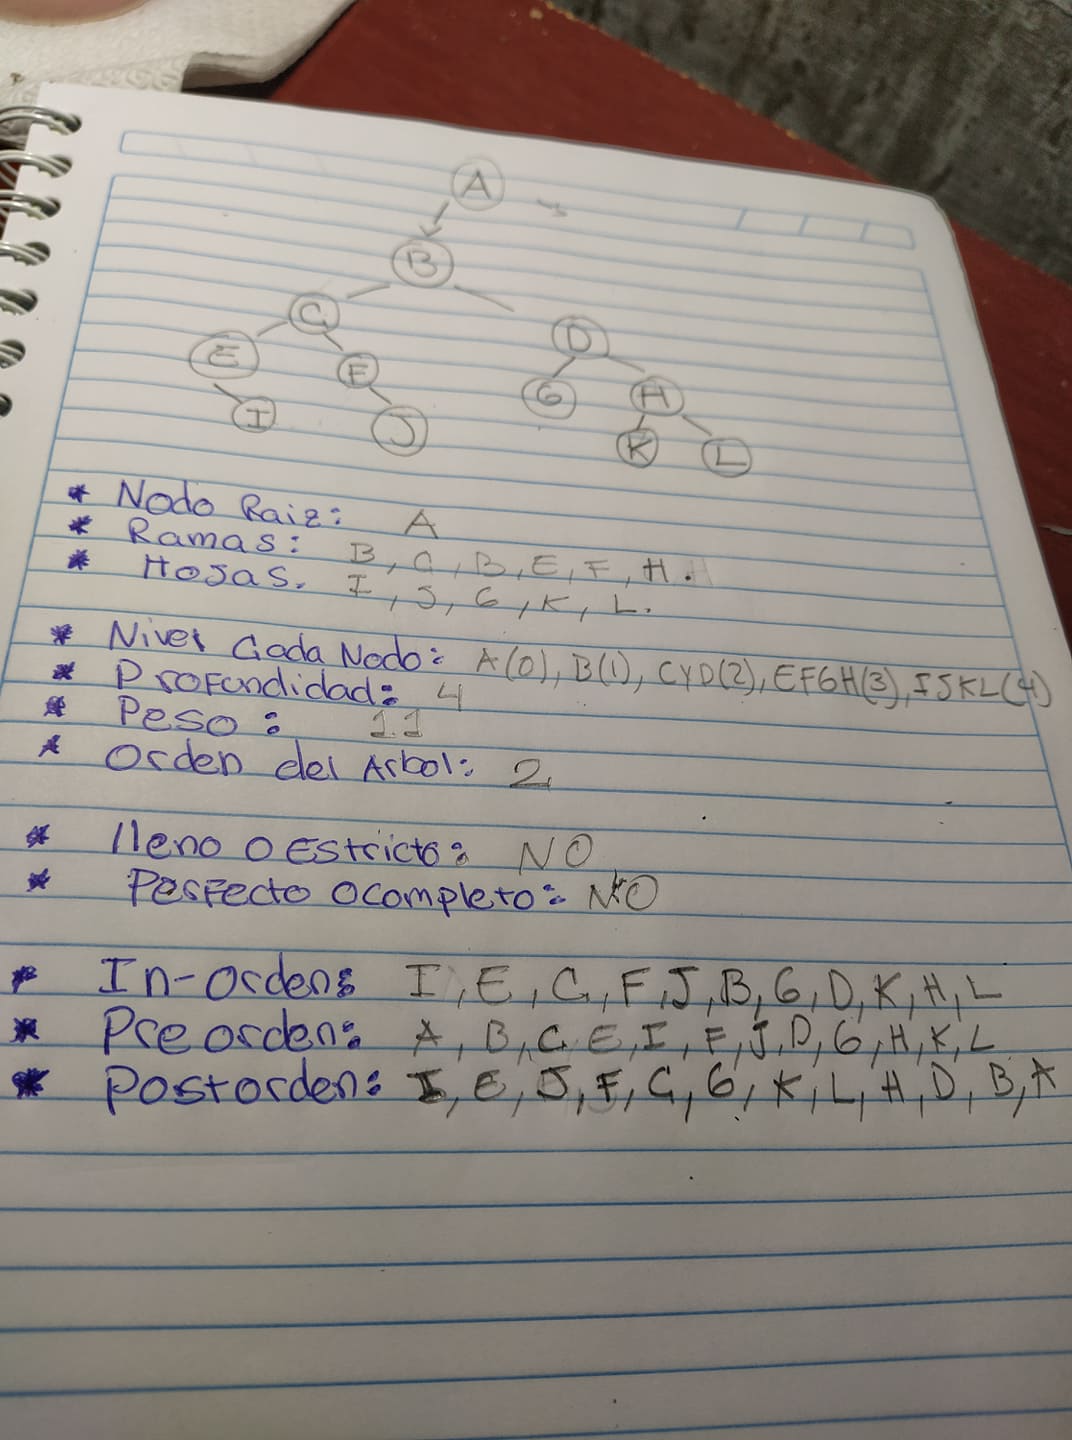 A
B
C D
E F G H
I J K L
* Nodo Raiz: A
* Ramas: B, C, B, E, F, H.
* Hojas. I, J, G, K, L.
* Nivel Cada Nodo: A(0), B(1), CYD(2), EFGH(3), IJKL(4)
* Profundidad: 4
* Peso: 11
* Orden del Arbol: 2
* lleno o Estricto: NO
* Perfecto o completo: NO
* In-orden: I, E, C, F, J, B, G, D, K, H, L
* Pre orden: A, B, C E, I, F, J, D, G, H, K, L
* Postorden: I, E, J, F, C, G, K, L, H, D, B, A